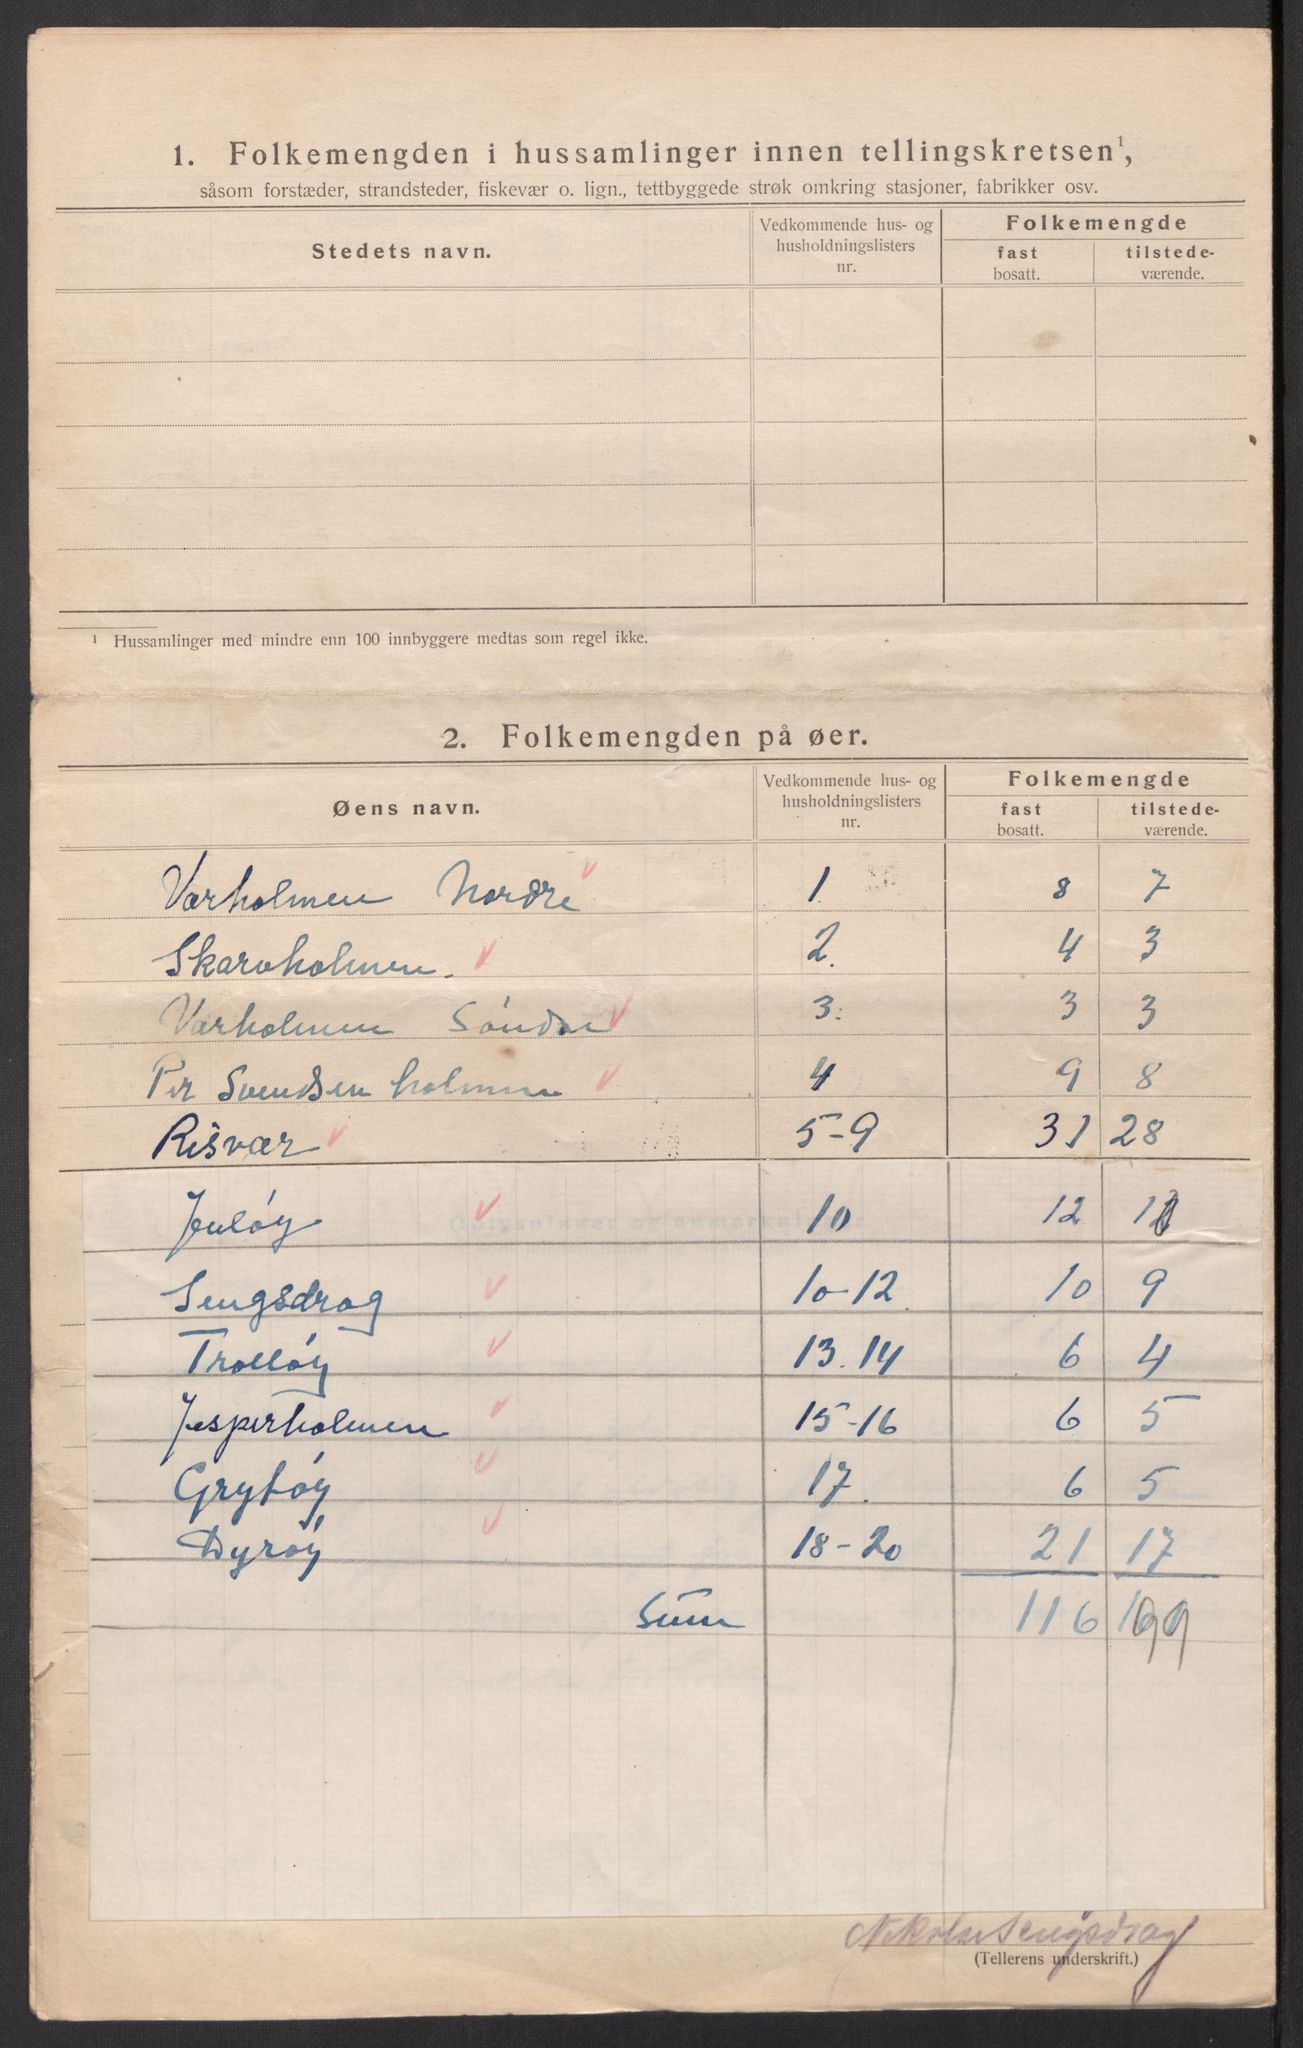 1. Folkemengden i hussamlinger innen tellingskretsen¹,
såsom forstæder, strandsteder, fiskevær o. lign., tettbyggede strøk omkring stasjoner, fabrikker osv.
Stedets navn. Vedkommende hus- og husholdningslisters nr. Folkemengde fast bosatt. tilstedeværende.
¹ Hussamlinger med mindre enn 100 innbyggere medtas som regel ikke.
2. Folkemengden på øer.
Øens navn. Vedkommende hus- og husholdningslisters nr. Folkemengde fast bosatt. tilstedeværende.
Værholmen Nordre 1. 8 7
Skarvholmen. 2. 4 3
Værholmen Söndre 3. 3 3
Per Svendsen holmen 4 9 8
Risvær 5-9 31 28
Julöy 10 12
Sengsdrag 10-12 10 9
Trollöy 13.14 6 4
Jesperholmen 15-16 6 5
Grytöy 17. 6 5
Dyröy 18-20 21 17
Sum 116
Nikolai Sengsdrag
(Tellerens underskrift.)